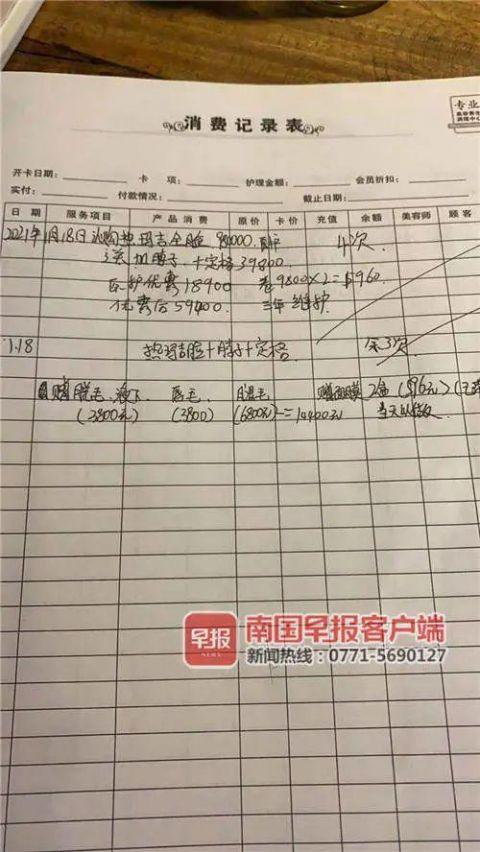 专业
消费记录表
开卡日期: 卡 项: 护理金额: 会员折扣:
实付: 付款情况: 截止日期:
日 期 服务项目 产品消费 原价 卡价 充值 余额 美容师 顾客
2021年1月18日 热玛吉全脸 98000 4次
送 加脖子 +定格39800
医护优惠18900 卷9800×2=1960
优惠后59400 三年维护
1.18 热玛吉脸+脖子+定格 余3次
赠脱毛、腋下 唇毛 腿毛 赠 2盒(896元)
(3800元) (3800) (6800元)=14400元 当天
早报
NEWS
南国早报客户端
新闻热线:0771-5690127